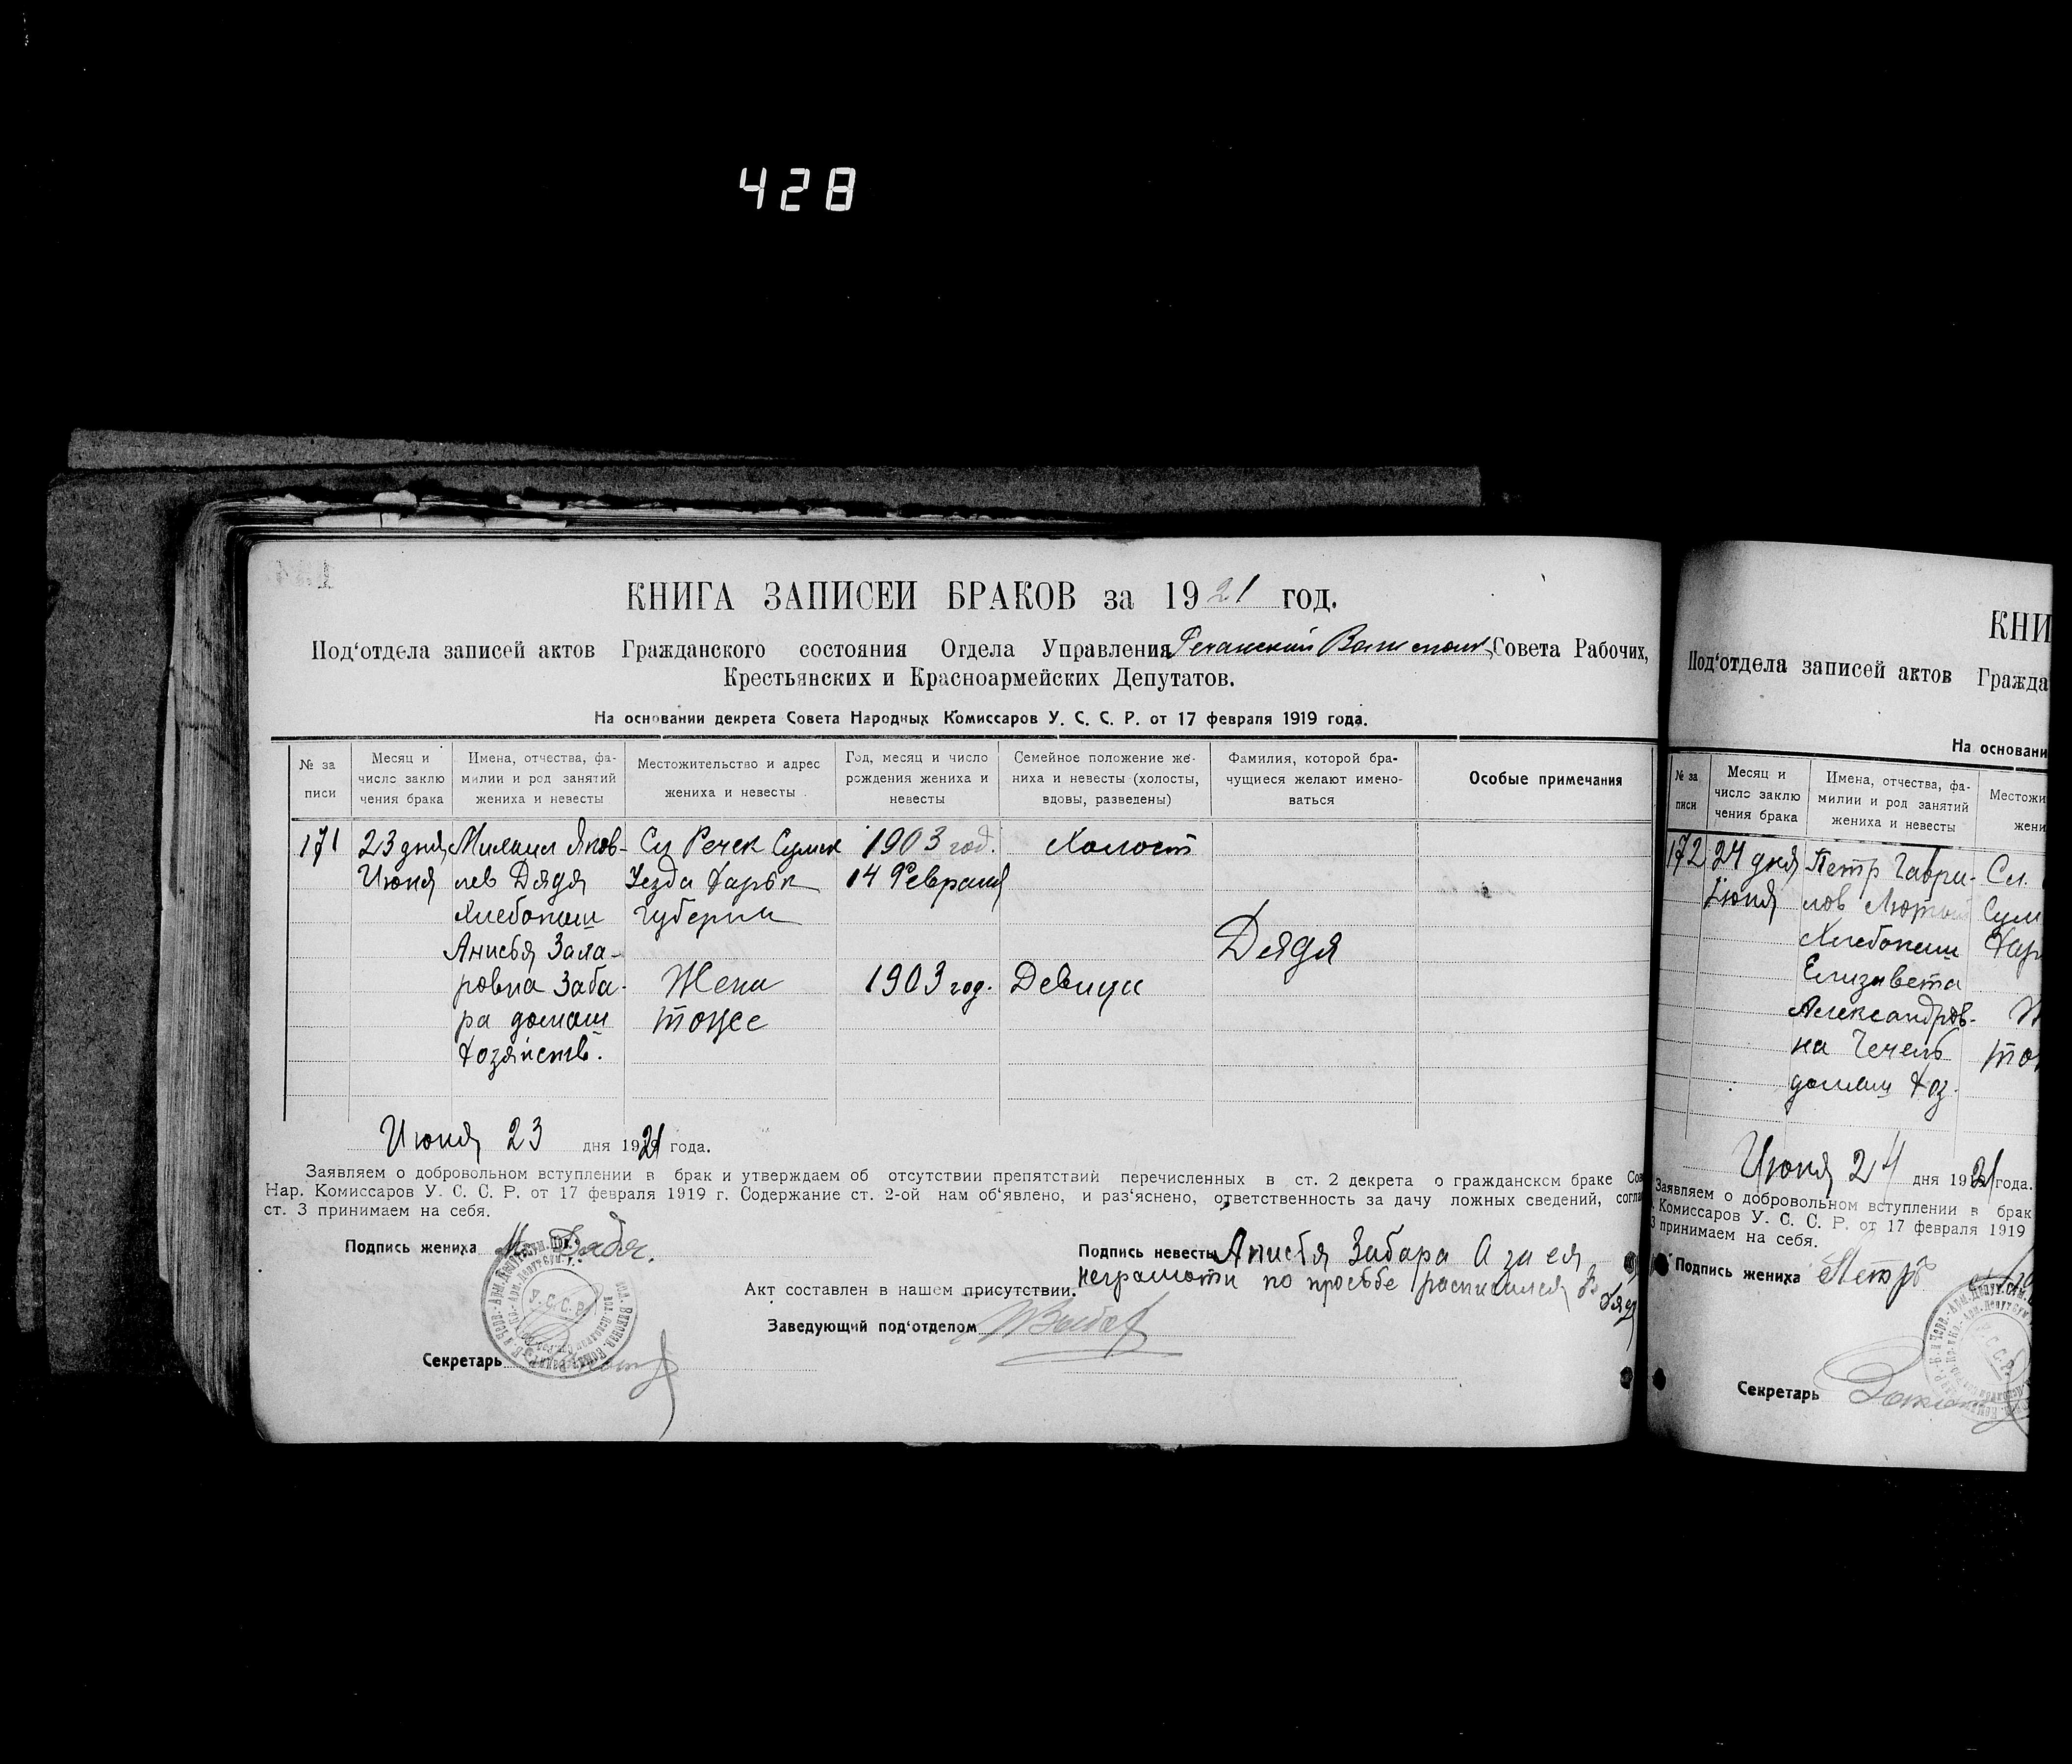 428
КНИГА ЗАПИСЕЙ БРАКОВ за 1921 год.
Под‘отдела записей актов Гражданского состояния Отдела Управления Совета Рабочих,
Крестьянских и Красноармейских Депутатов.
На основании декрета Совета Народных Комиссаров У. С. С. Р. от 17 февраля 1919 года.
№ за
писи
Месяц и
число заклю
чения брака
Имена, отчества, фа-
милии и род занятий
жениха и невесты
Местожительство и адрес
жениха и невесты
Год, месяц и число
рождения жениха и
невесты
Семейное положение же-
ниха и невесты (холосты,
вдовы, разведены)
Фамилия, которой бра-
чущиеся желают имено-
ваться
Особые примечания
171
23 дня
Июня
Михаил Яков-
лев Дядя
Хлебопаш
Анисья Заха-
ровна Заба-
ра домаш
хозяйств.
Сл Речек Сумск
Уезда Харьк
губерни
Жена
тоже
1903 год.
14 Февраля
1903 год.
Холост
Девица
Дядя
Июня 23 дня 1921 года.
Заявляем о добровольном вступлении в брак и утверждаем об отсутствии препятствий перечисленных в ст. 2 декрета о гражданском браке Сов
Нар. Комиссаров У. С. С. Р. от 17 февраля 1919 г. Содержание ст. 2-ой нам об‘явлено, и раз‘яснено, ответственность за дачу ложных сведений, согла
ст. 3 принимаем на себя.
Подпись жениха М. Дядя.
Подпись невесты Анисья Забара А за ея
неграмотн по просьбе росписался
Акт составлен в нашем присутствии.
Заведующий под‘отделом
Секретарь
У.С.С.Р.
КНИ
Под‘отдела записей актов Гражда
На основани
№ за
писи
Месяц и
число заклю
чения брака
Имена, отчества, фа-
милии и род занятий
жениха и невесты
Местожи
жени
172
24 дня
Июня
Петр Гаври-
лов Лютый
Хлебопаш
Елизавета
Александров-
на Чечель
домаш хоз.
Сл.
Сум
Хар
Июня 24 дня 1921 года.
Заявляем о добровольном вступлении в брак
Комиссаров У. С. С. Р. от 17 февраля 1919
3 принимаем на себя.
Подпись жениха Петр
Секретарь